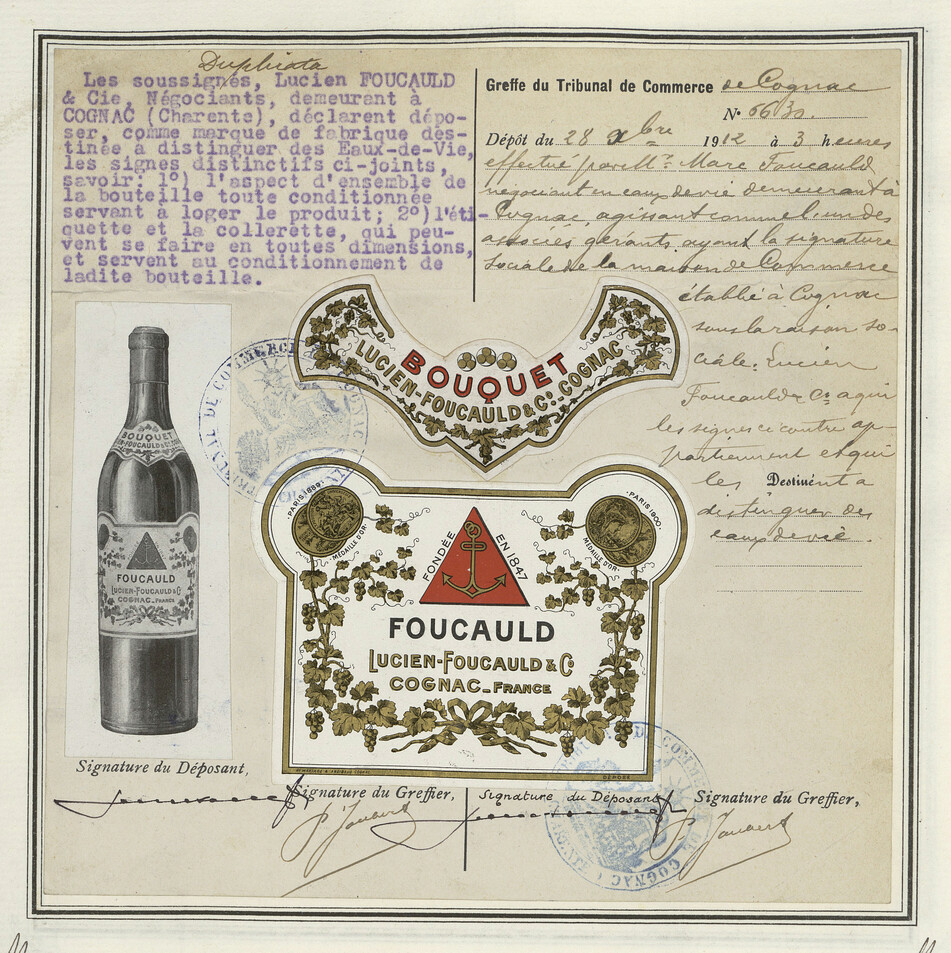 Duplicata
Les soussignés, Lucien FOUCAULD
& Cie, Négociants, demeurant à
COGNAC (Charente), déclarent dépo-
ser, comme marque de fabrique des-
tinée à distinguer des Eaux-de-Vie,
les signes distinctifs ci-joints,
savoir: 1°) l'aspect d'ensemble de
la bouteille toute conditionnée
servant à loger le produit; 2°) l'éti-
quette et la collerette, qui peu-
vent se faire en toutes dimensions,
et servent au conditionnement de
ladite bouteille.
Greffe du Tribunal de Commerce de Cognac
N° 6630.
Dépôt du 28 Xbre 1912 à 3 heures
effectué par Mr. Marc Foucauld
négociant en eaux de vie demeurant à
Cognac agissant comme l'un des
associés gérants ayant la signature
sociale de la maison de Commerce
établie à Cognac
sous la raison so-
ciale: Lucien
Foucauld & Co a qui
les signes ci contre ap-
partiennent et qui
les Destinent a
distinguer des
eaux de vie.
BOUQUET
LUCIEN-FOUCAULD & Co. COGNAC
BOUQUET
LUCIEN-FOUCAULD & Co. COGNAC
FOUCAULD
LUCIEN-FOUCAULD & Co
COGNAC_FRANCE
PARIS 1889
MÉDAILLE D'OR
PARIS 1900
MÉDAILLE D'OR
FONDÉE EN 1847
FOUCAULD
LUCIEN-FOUCAULD & Co
COGNAC_FRANCE
DÉPOSÉ
TRIBUNAL DE COMMERCE
COGNAC
Signature du Déposant,
Signature du Greffier,
Signature du Déposant
Signature du Greffier,